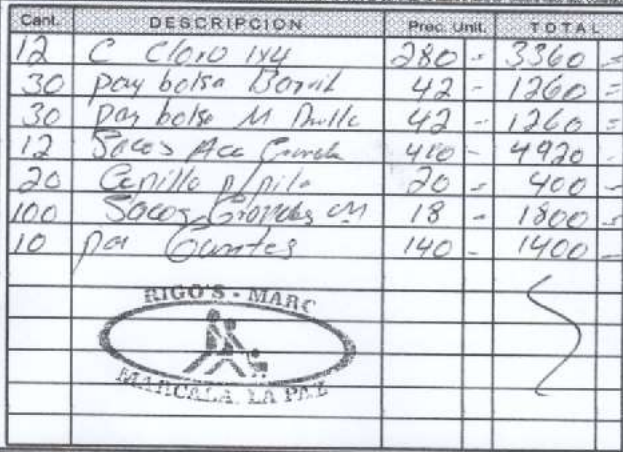 Cant. DESCRIPCION Prec. Unit. TOTAL
12 C Cloro 1x4 280 - 3360 =
30 paq bolsa Barril 42 - 1260 =
30 paq bolsa M 42 - 1260 =
12 Sacos 410 - 4920 -
20 Cepillo p/pila 20 - 400 -
100 Sacos Grandes 18 - 1800 -
10 par Guantes 140 - 1400 -
RIGO'S - MARC
MARCALA, LA PAZ